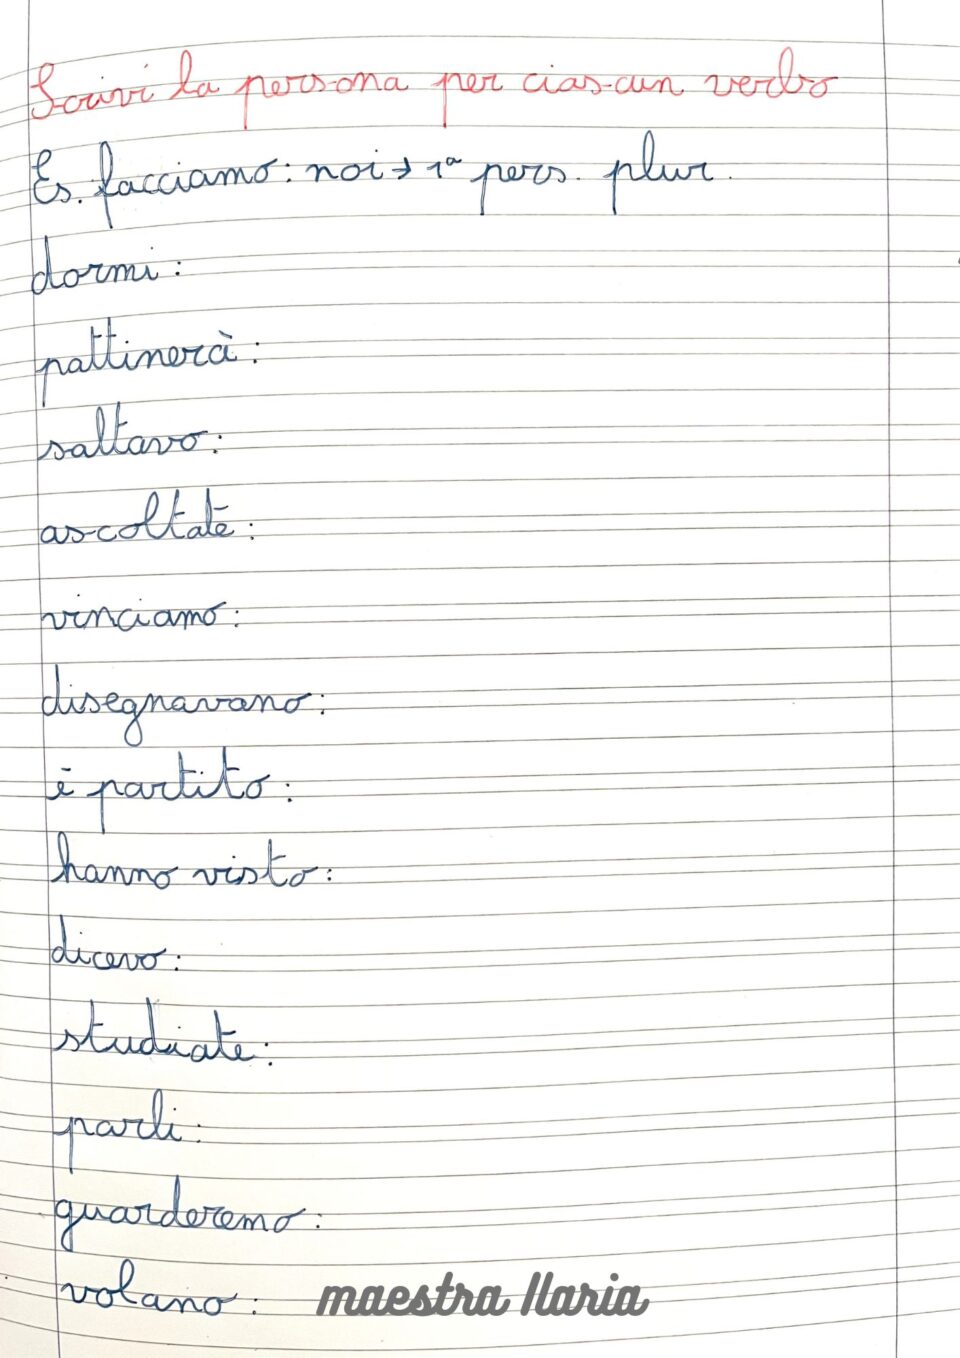 Scrivi la persona per ciascun verbo
Es. facciamo: noi → 1ª pers. plur.
dormi:
pattinerà:
saltavo:
ascoltate:
vinciamo:
disegnavano:
è partito:
hanno visto:
dicevo:
studiate:
parli:
guarderemo:
volano:
maestra Ilaria